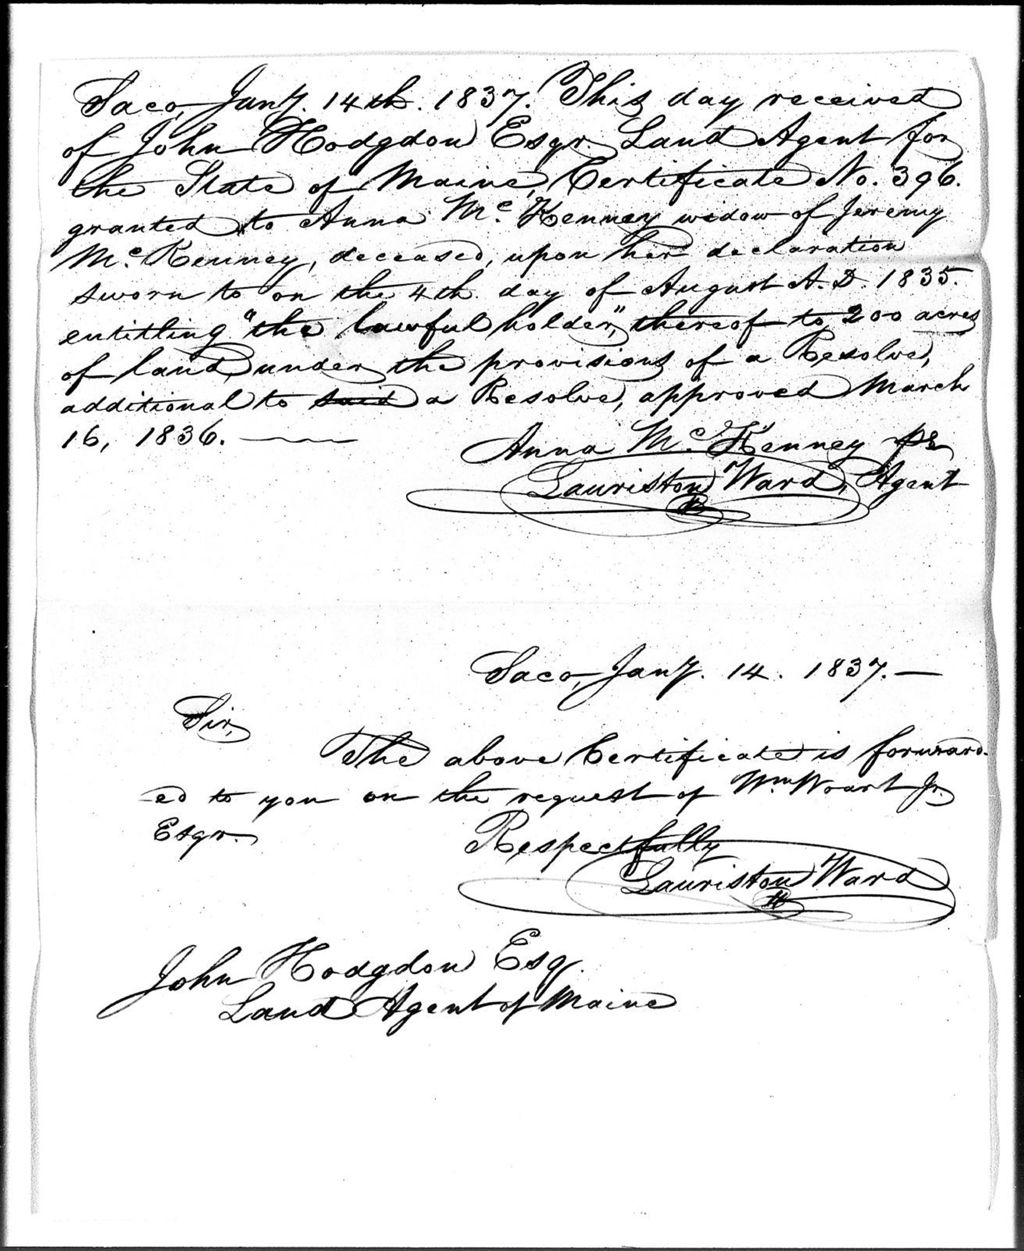 Saco, Jany. 14th. 1837. This day received
of John Hodgdon Esqr. Land Agent for
the State of Maine, Certificate No. 396.
granted to Anna Mc.Kenney widow of Jeremy
Mc.Kenney, deceased, upon her declaration
sworn to on the 4th. day of August A.D. 1835.
entitling "the lawful holder," thereof to 200 acres
of land, under the provisions of a Resolve,
additional to said a Resolve, approved March
16, 1836.
Anna Mc.Kenney
Lauriston Ward, Agent
Saco, Jany. 14. 1837.
Sir,
The above Certificate is forward-
ed to you on the request of Wm Jr.
Esqr.
Respectfully
Lauriston Ward
John Hodgdon Esq.
Land Agent of Maine